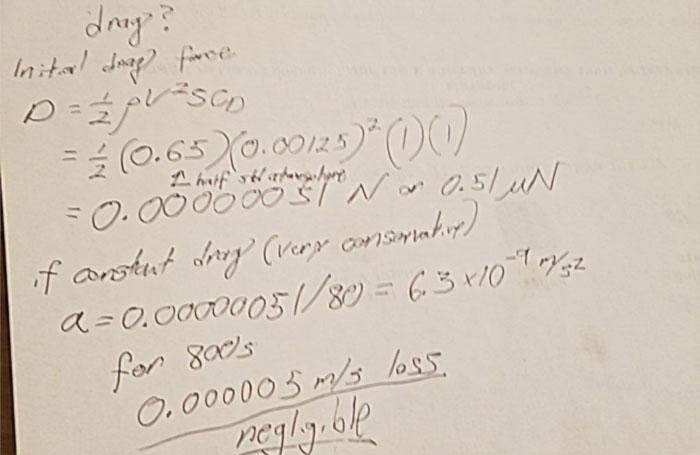 drag?
Initial drag force
D = ½ρV²SCD
= ½ (0.65)(0.00125)² (1)(1)
↑ half std atmosphere
= 0.00000051 N or 0.51 μN
if constant drag (very conservative)
a = 0.00000051/80 = 6.3 × 10⁻⁹ m/s²
for 800s
0.000005 m/s loss
negligible